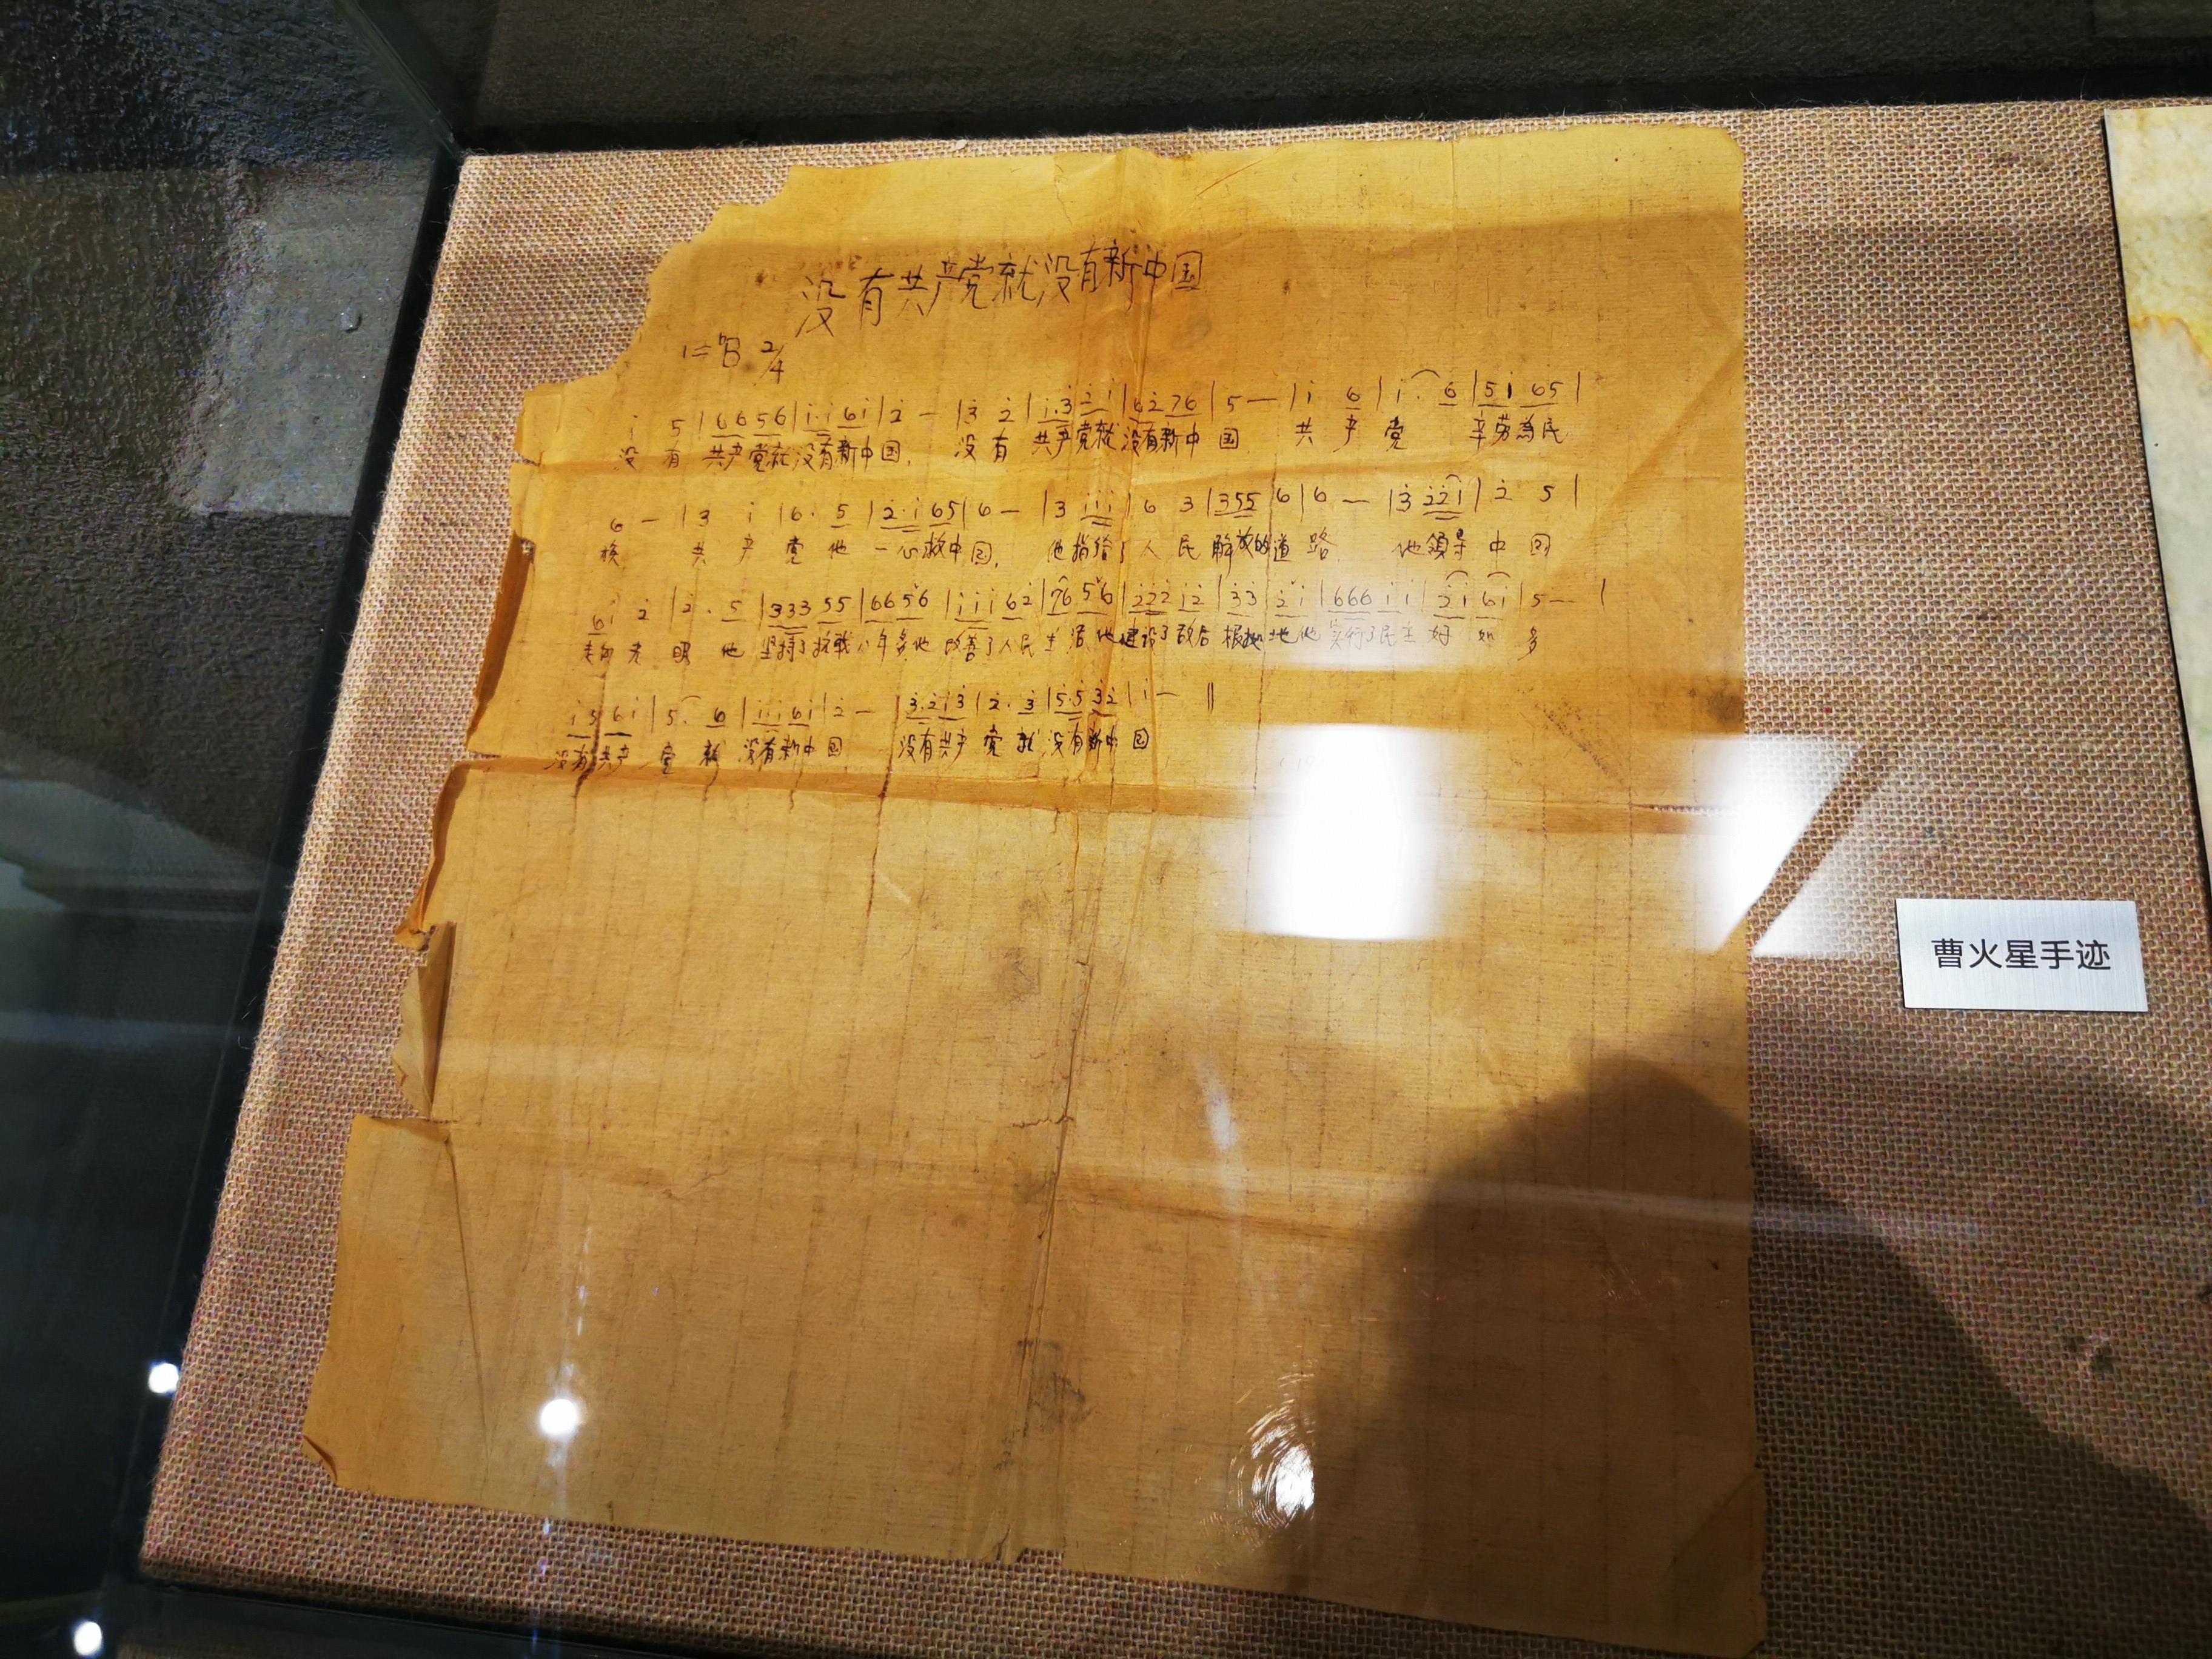 没有共产党就没有新中国
1=ᵇB 2/4
i 5 | 6 6 5 6 | i. i 6 i | 2̇ — | 3̇ 2̇ | i. 3̇ 2̇ i | 6 2̇ 7 6 | 5 — | i 6 | i. 6 | 5 i 6 5 |
没 有 共产党就没有新中国, 没有 共产党就没有新中国 共 产 党 辛劳為民
6 — | 3 i | 6. 5 | 2̇. i 6 5 | 6 — | 3 i i i | 6 3 | 3 5 5 6 | 6 — | 3̇ 2̇ 2̇ i | 2̇ 5 |
族 共 产 党 他 一心救中国, 他指给了人民解放的道路 他領导中国
6 i 2̇ | 2̇. 5 | 3 3 3 5 5 | 6 6 5 6 | i i i 6 2̇ | 7 6 5 6 | 2̇ 2̇ 2̇ i 2̇ | 3̇ 3̇ 2̇ i | 6 6 6 i i | 2̇ i 6 i | 5 — |
走向光明 他坚持了抗战八年多他改善了人民生活他建设了敌后根据地他实行了民主好 如 多
i 5 6 i | 5. 6 | i i i 6 i | 2̇ — | 3̇. 2̇ i 3̇ | 2̇. 3̇ | 5̇. 5̇ 3̇ 2̇ | i — ||
没有共产党 就 没有新中国 没有共产党就没有新中国
曹火星手迹